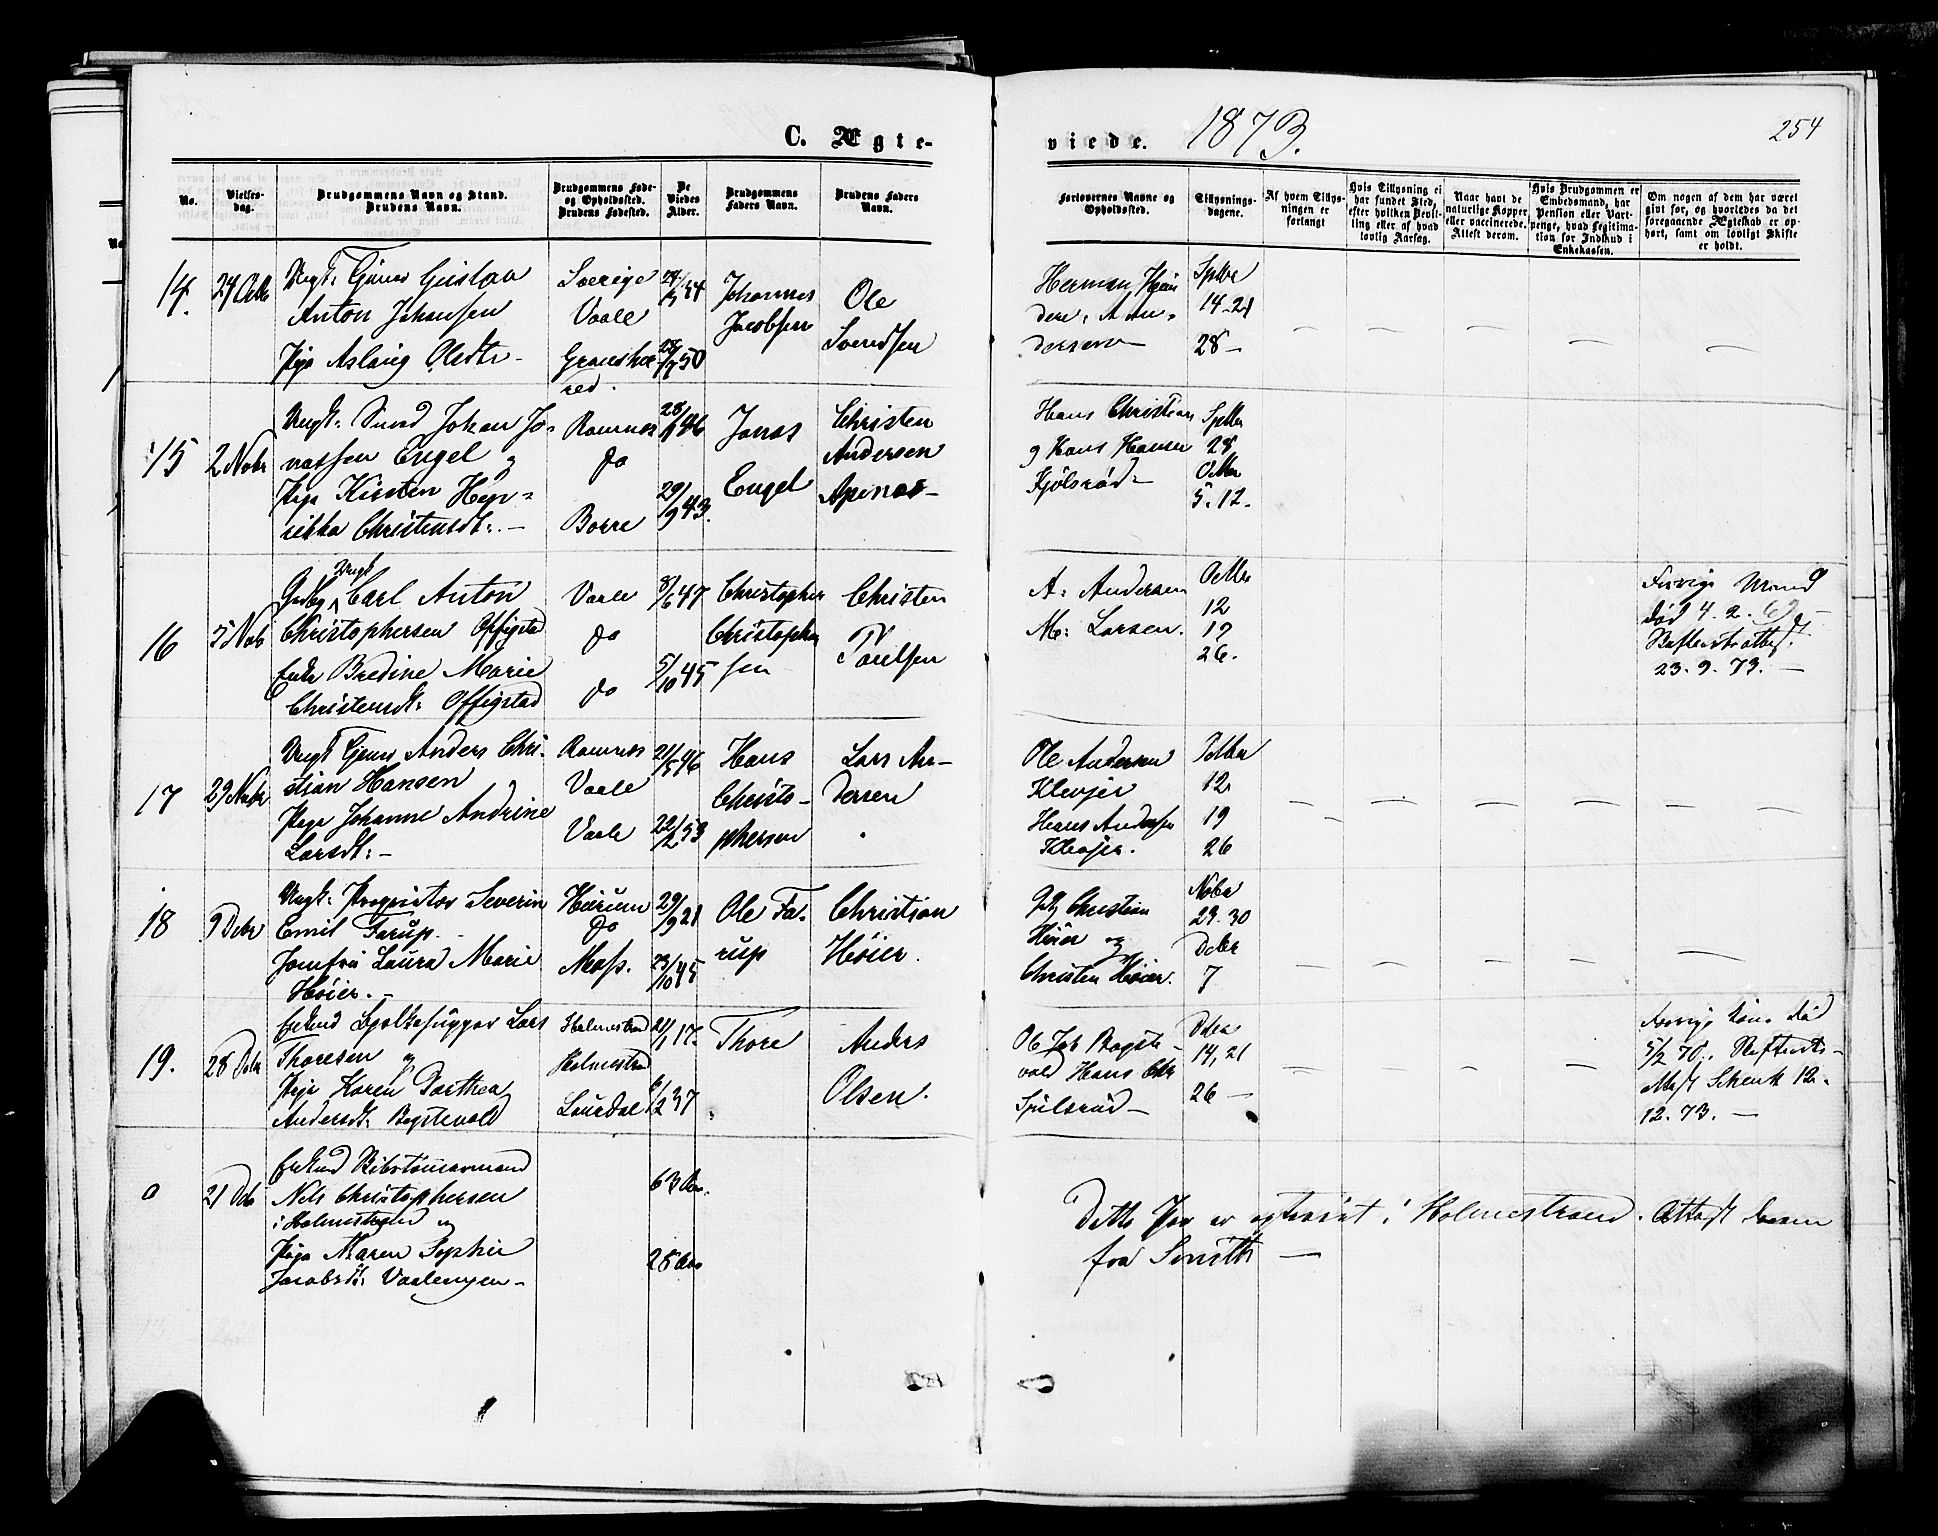 C. Ægte-
viede. 1873.
254
No.
Vielses-
dag.
Brudgommens Navn og Stand.
Brudens Navn.
Brudgommens Føde-
og Opholdssted.
Brudens Fødested.
De
Viedes
Alder.
Brudgommens
Faders Navn.
Brudens Faders
Navn.
Forlovernes Navne og
Opholdssted.
Tillysnings-
dagene.
Af hvem Tillys-
ningen er
forlangt
Hvis Tillysning ei
har fundet Sted,
efter hvilken Bevil-
ling eller af hvad
lovlig Aarsag.
Naar havt de
naturlige Kopper
eller vaccinerede.
Attest derom.
Hvis Brudgommen er
Embedsmand, har
Pension eller Vart-
penge, hvad Legitima-
tion for Indskud i
Enkekassen.
Om nogen af dem har været
givt før, og hvorledes da det
foregaaende Ægteskab er op-
hørt, samt om lovligt Skifte
er holdt.
14.
Ungk: Gaml Gustav
Anton Johansen
Pige Aslaug Olsdtr -
Sverige
Vaale
Gransher-
red.
/54
/50
Johannes
Jacobsen
Ole
Svendsen
Herman
14-21
28-
15
2 Novbr
Ungk: Johan Jo-
nassen Engel og
Pige Kirsten Hen-
rikka Christensdt: -
Ramnes
do
Borre
28/ 46
29/9 43.
Jonas
Engel
Christen
Andersen
Hans Christian
og Hans Hansen
28
Octbr
5. 12.
16
5 Novb
Ungk
Carl Anton
Christophersen
Enke Bredine Marie
Christensdt:
Vaale
do
do
8/6 47
5/10 45
Christopher
Christopher
sen
Christen
Poulsen
A. Andersen
M: Larsen.
Octbr
12
19
26.
Forrige Mand
død 4. 2. 69
23. 9. 73. -
17
29 Novbr
Ungk Anders Chri-
stian Hansen
Pige Johanne Andrine
Larsdt: -
Ramnes
Vaale
Vaale
21/5 46
22/2 53
Hans
Christo-
phersen
Lars An-
dersen
Ole Andersen
Klevjer
Hans Andersen
Klevjer.
12
19
26
18
9 Decbr
Ungk: Proprietær Severin
Emil Farup.
Jomfru Laura Marie
Høier. -
do
Moss.
29/9 28
23/10 45
Ole Fa-
rup
Christian
Høier.
Christian
Høier og
Christen Høier.
Novbr
23. 30
Decbr
7
19.
28 Decbr
Enkmd Lars
Thoresen og
Pige Karen Dorthea
Andersdt: Bogstevold
Holmestrand
Holmestrand
Laurdal
21/1 17.
6/2 37
Thore
Anders
Olsen.
Ole Jak Bogste-
vold Hans Chr
Decbr
14, 21
26 -
Forrige Kone død
5/2 70.
12.
12. 73. -
0
21 Decb
Enkmd
Nils Christophersen
i Holmestrand og
Pige Maren Sophie
Jacobsdt: Vaalengen -
63 Aar.
28 Aar
Dette Par er egteviet i Holmestrand. Attest herom
fra Smith -